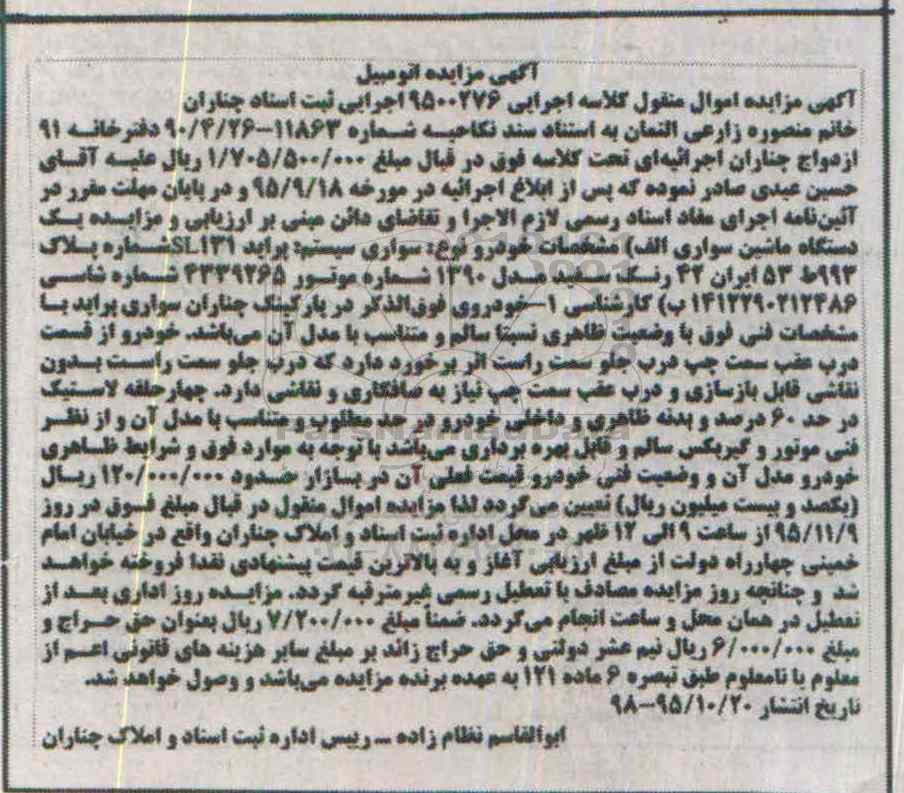 آگهی مزایده اتومبیل
آگهی مزایده اموال منقول کلاسه اجرایی ۹۵۰۰۲۷۶ اجرایی ثبت اسناد چناران
خانم منصوره زارعی التمان به استناد سند نکاحیه شماره ۱۱۸۶۳–۹۰/۴/۲۶ دفترخانه ۹۱
ازدواج چناران اجرائیه‌ای تحت کلاسه فوق در قبال مبلغ ۱/۷۰۵/۵۰۰/۰۰۰ ریال علیه آقای
حسین عبدی صادر نموده که پس از ابلاغ اجرائیه در مورخه ۹۵/۹/۱۸ و در پایان مهلت مقرر در
آئین‌نامه اجرای مفاد اسناد رسمی لازم الاجرا و تقاضای دائن مبنی بر ارزیابی و مزایده یک
دستگاه ماشین سواری الف) مشخصات خودرو نوع: سواری سیستم: پراید SL۱۳۱ شماره پلاک
۹۹۳ط ۵۳ ایران ۴۲ رنگ سفید مدل ۱۳۹۰ شماره موتور ۴۳۳۹۲۶۵ شماره شاسی
۱۴۱۲۲۹۰۲۱۲۴۸۶ ب) کارشناسی ۱–خودروی فوق‌الذکر در پارکینگ چناران سواری پراید با
مشخصات فنی فوق با وضعیت ظاهری نسبتا سالم و متناسب با مدل آن می‌باشد. خودرو از قسمت
درب عقب سمت چپ درب جلو سمت راست اثر برخورد دارد که درب جلو سمت راست بدون
نقاشی قابل بازسازی و درب عقب سمت چپ نیاز به صافکاری و نقاشی دارد. چهار حلقه لاستیک
در حد ۶۰ درصد و بدنه ظاهری و داخلی خودرو در حد مطلوب و متناسب با مدل آن و از نظر
فنی موتور و گیربکس سالم و قابل بهره برداری می‌باشد با توجه به موارد فوق و شرایط ظاهری
خودرو مدل آن و وضعیت فنی خودرو قیمت فعلی آن در بازار حدود ۱۲۰/۰۰۰/۰۰۰ ریال
(یکصد و بیست میلیون ریال) تعیین می‌گردد لذا مزایده اموال منقول در قبال مبلغ فوق در روز
۹۵/۱۱/۹ از ساعت ۹ الی ۱۲ ظهر در محل اداره ثبت اسناد و املاک چناران واقع در خیابان امام
خمینی چهارراه دولت از مبلغ ارزیابی آغاز و به بالاترین قیمت پیشنهادی نقدا فروخته خواهد
شد و چنانچه روز مزایده مصادف با تعطیل رسمی غیرمترقبه گردد. مزایده روز اداری بعد از
تعطیل در همان محل و ساعت انجام می‌گردد. ضمناً مبلغ ۷/۲۰۰/۰۰۰ ریال بعنوان حق حراج و
مبلغ ۶/۰۰۰/۰۰۰ ریال نیم عشر دولتی و حق حراج زائد بر مبلغ سایر هزینه های قانونی اعم از
معلوم یا نامعلوم طبق تبصره ۶ ماده ۱۲۱ به عهده برنده مزایده می‌باشد و وصول خواهد شد.
تاریخ انتشار ۹۵/۱۰/۲۰–۹۸
ابوالقاسم نظام زاده – رییس اداره ثبت اسناد و املاک چناران